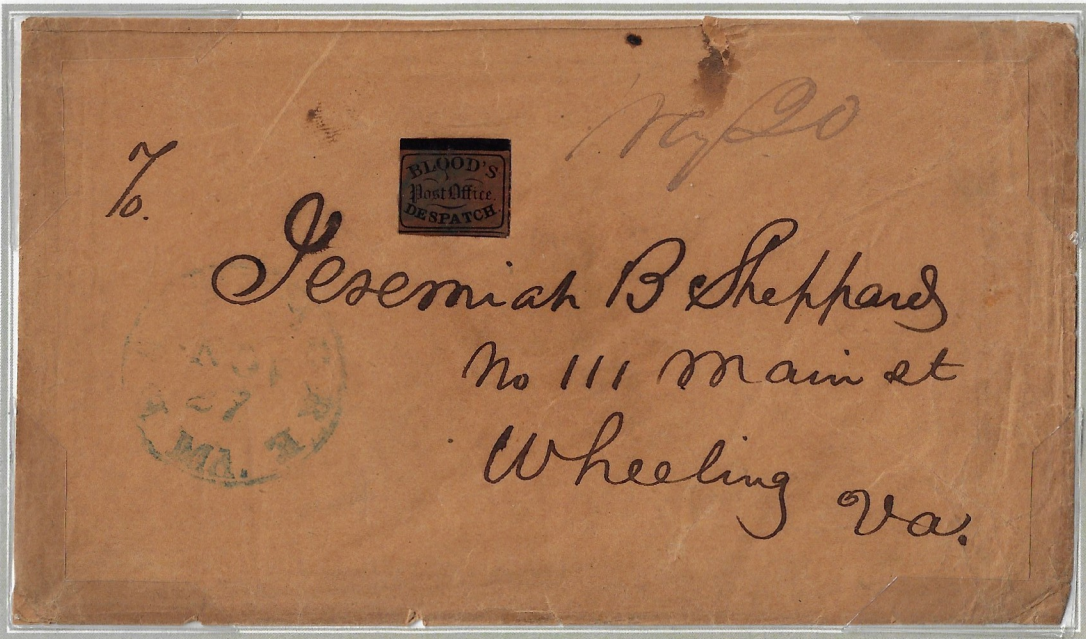 To.
BLOOD'S
Post Office
DESPATCH
Jeremiah B Sheppard
No 111 Main st
Wheeling
Va.